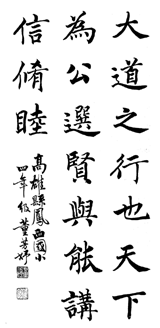 大道之行也天下
為公選賢與能講
信脩睦
高雄縣鳳西國小
四年級董芳妤